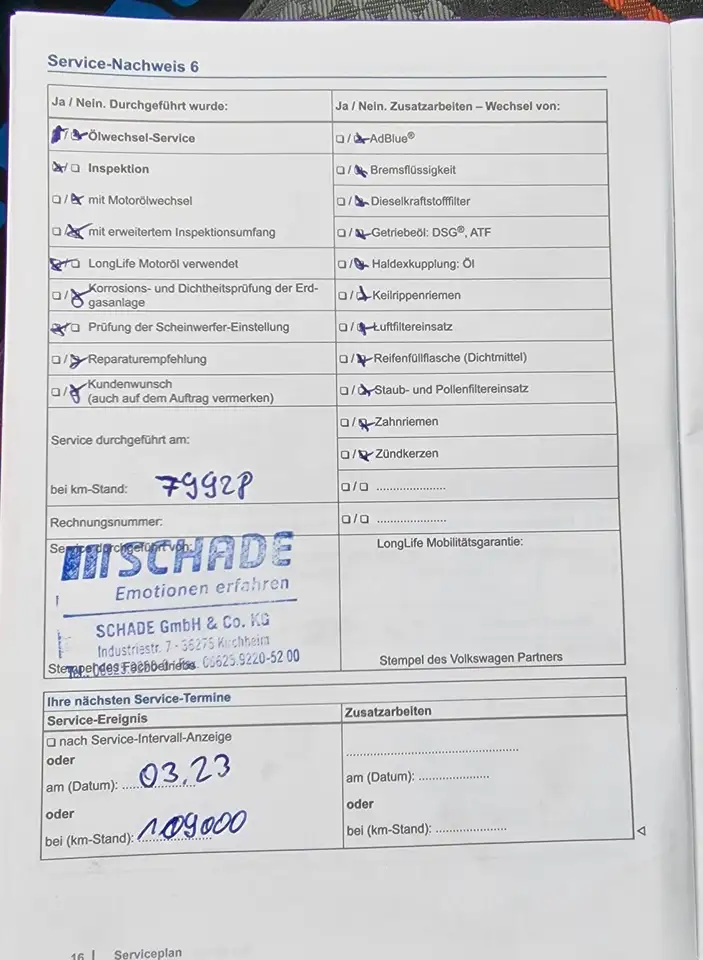 Service-Nachweis 6
Ja / Nein. Durchgeführt wurde:
Ölwechsel-Service
Inspektion
mit Motorölwechsel
mit erweitertem Inspektionsumfang
LongLife Motoröl verwendet
Korrosions- und Dichtheitsprüfung der Erd-
gasanlage
Prüfung der Scheinwerfer-Einstellung
Reparaturempfehlung
Kundenwunsch
(auch auf dem Auftrag vermerken)
Service durchgeführt am:
bei km-Stand: 79928
Rechnungsnummer:
Service durchgeführt von:
SCHADE
Emotionen erfahren
SCHADE GmbH & Co. KG
Industriestr. 7 - 36275 Kirchheim
06625.9220-52 00
Stempel des Fachbetriebs
Ja / Nein. Zusatzarbeiten – Wechsel von:
AdBlue®
Bremsflüssigkeit
Dieselkraftstofffilter
Getriebeöl: DSG®, ATF
Haldexkupplung: Öl
Keilrippenriemen
Luftfiltereinsatz
Reifenfüllflasche (Dichtmittel)
Staub- und Pollenfiltereinsatz
Zahnriemen
Zündkerzen
☐/☐ ......................
☐/☐ ......................
LongLife Mobilitätsgarantie:
Stempel des Volkswagen Partners
Ihre nächsten Service-Termine
Service-Ereignis
☐ nach Service-Intervall-Anzeige
oder
am (Datum): 03.23
oder
bei (km-Stand): 109000
Zusatzarbeiten
am (Datum): ......................
oder
bei (km-Stand): ......................
16 | Serviceplan